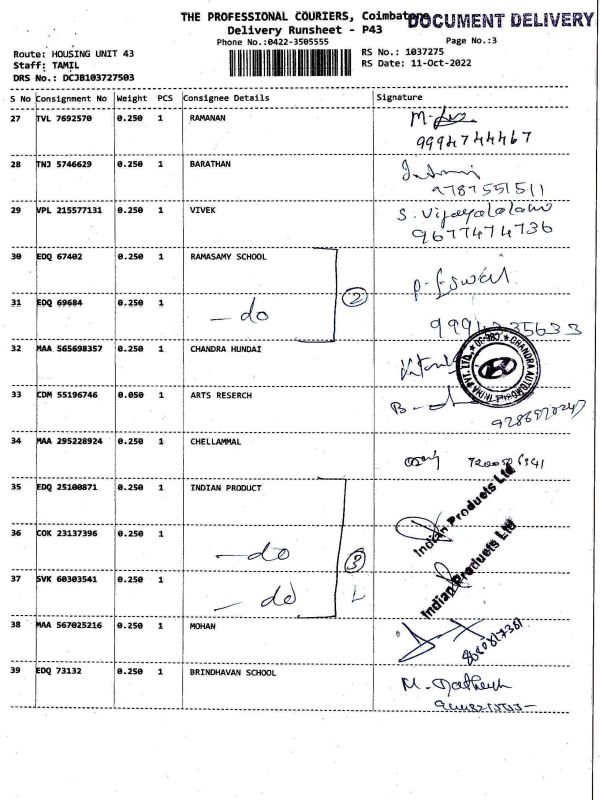 THE PROFESSIONAL COURIERS, Coimbatore
DOCUMENT DELIVERY
Delivery Runsheet - P43
Phone No.:0422-3505555
Page No.:3
Route: HOUSING UNIT 43
RS No.: 1037275
Staff: TAMIL
RS Date: 11-Oct-2022
DRS No.: DCJB103727503
S No Consignment No Weight PCS Consignee Details Signature
27 TVL 7692570 0.250 1 RAMANAN
9994744467
28 TNJ 5746629 0.250 1 BARATHAN
9787551511
29 VPL 215577131 0.250 1 VIVEK
9677474736
30 EDQ 67402 0.250 1 RAMASAMY SCHOOL
P. Eswari
2
31 EDQ 69684 0.250 1
- do
32 MAA 565698357 0.250 1 CHANDRA HUNDAI
33 CDM 55196746 0.050 1 ARTS RESERCH
34 MAA 295228924 0.250 1 CHELLAMMAL
35 EDQ 25100871 0.250 1 INDIAN PRODUCT
Indian Products Ltd
36 COK 23137396 0.250 1
- do
3
Indian Products Ltd
37 SVK 60303541 0.250 1
- do
38 MAA 567025216 0.250 1 MOHAN
39 EDQ 73132 0.250 1 BRINDHAVAN SCHOOL